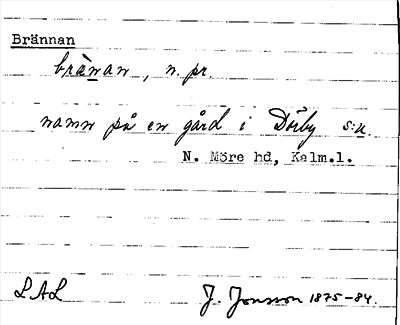 Brännan
brä̀nan, n. pr.
namn på en gård i Dörby s:n.
N. Möre hd, Kalm.l.
LAL J. Jonsson 1875-84.